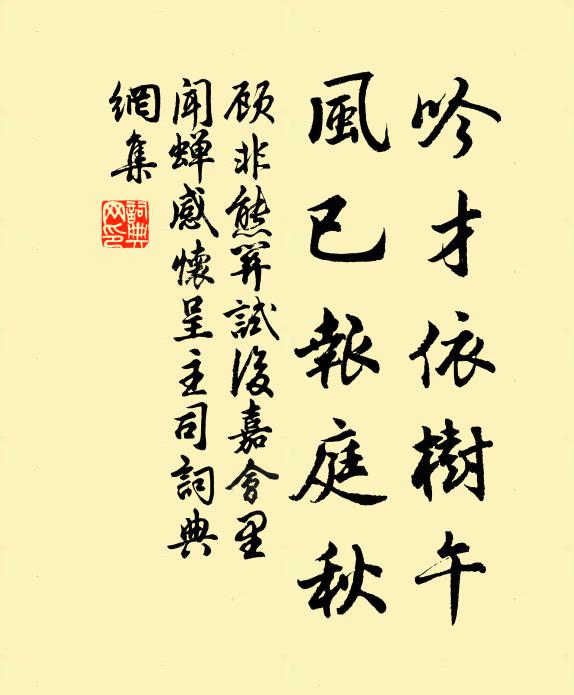 吟才依樹午
風已報庭秋
顧非熊䇦試後嘉會里
聞蟬感懷呈主司詞典
網集
詞典
网印